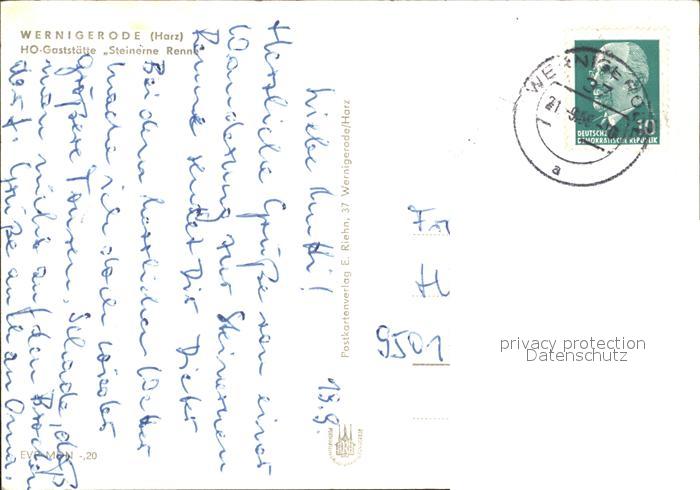 WERNIGERODE (Harz)
HO-Gaststätte „Steinerne Renne
19.9.
Liebe Mutti!
Herzliche Grüße von einer
Wanderung zur Steinernen
Renne sendet Dir Dieter
Bei dem herrlichen Wetter
mache ich doch wieder
größere Touren. Schade, daß
man nicht auf den Brocken
darf. Grüße an Oma.
EVP MDN -,20
Postkartenverlag E. Riehn, 37 Wernigerode/Harz
WERNIGERODE
37
21.-9.
a
10
DEUTSCHE
DEMOKRATISCHE REPUBLIK
Fr
H
9501
privacy protection
Datenschutz